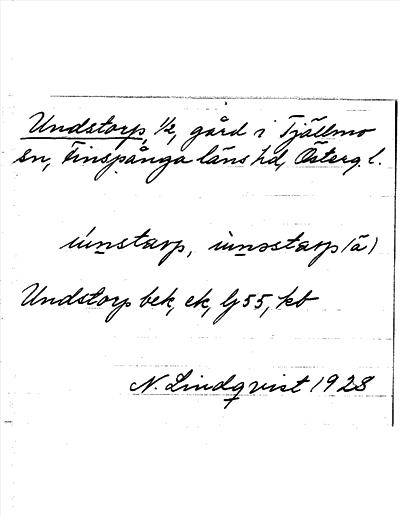 Undstorp, 1/2, gård i Tjällmo
sn, Finspånga läns hd, Österg. l.
ùnstarp, ùnsstarp (ä)
Undstorp bek, ek, lj 55, kb
N. Lindqvist 1928